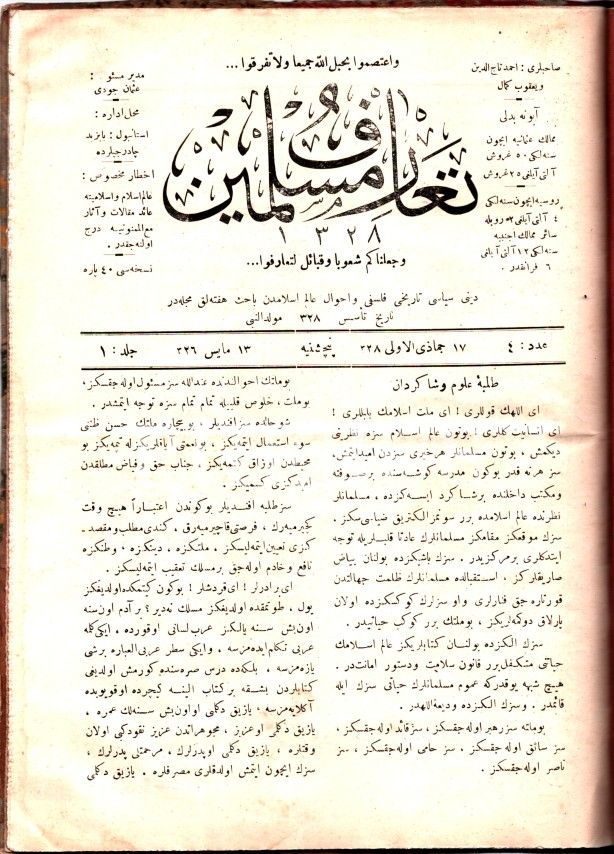 واعتصموا بحبل الله جميعا ولا تفرقوا ...
صاحبلری : احمد تاج الدین
و یعقوب کمال
آبونه بدلی
ممالك عثمانیه ایچون
سنه لکی ٥٠ غروش
آلتی آیلغی ٢٥ غروش
روسیه ایچون سنه لکی
٤ آلتی آیلغی ٢ روبله
سائر ممالك اجنبیه
سنه لکی ١٢ آلتی آیلغی
٦ فرانقدر .
تعارف مسلمین
١٣٢٨
وجعلناكم شعوبا وقبائل لتعارفوا ...
مدیر مسئو :
عثمان جودی
محل اداره :
استانبول : بایزید
چادرجیلرده
اخطار مخصوص :
عالم اسلام و اسلامیته
عائد مقالات و آثار
مع الممنونیه درج
اولنه جقدر .
نسخه سی ٤٠ پاره
دینی سیاسی تاریخی فلسفی و احوال عالم اسلامدن باحث هفته لق مجله در
تاریخ تأسیس ٣٢٨ مولد النبی
عدد : ٤ ١٧ جماذی الاولی ٣٢٨ پنجشنبه ١٣ مایس ٣٢٦ جلد : ١
طلبهٔ علوم و شاکردان
ای اللهك قوللری ! ای ملت اسلامك بابللری !
ای انسانیت کللری ! بوتون عالم اسلام سزه نظرینی
دیکمش ، بوتون مسلمانلر هر خیری سزدن امید ایتمش،
سز هر نه قدر بوکون مدرسه کوشه سنده بر صوفته
و مکتب داخلنده بر شاکرد ایسه کزده ، مسلمانلر
نظرنده عالم اسلامده برر سونمز الکتریق ضیاسی سکز .
سزك موقعکز مقامکز مسلمانلرك عادتا قلبلریله توجه
ایتدکلری بر مرکزیدر . سزك باشکزده بولنان بیاض
صاریقلرکز . استقبالده مسلمانلرك ظلمت جهالتدن
قورتاره جق فنارلری و او سزلرك کوکسکزده اولان
پارلاق دوکمه لریکز ، بوملتك برر کوکب حیاتیدر .
سزك الکزده بولنان کتابلریکز عالم اسلامك
حیاتی متکفل برر قانون سلامت و دستور امانتدر .
هیچ شبهه یوقدرکه عموم مسلمانلرك حیاتی سزك ایله
قائمدر . و سزك الکزده ودیعة اللهدر .
بوملته سز رهبر اوله جقسکز ، سز قائد اوله جقسکز ،
سز سائق اوله جقسکز ، سز حامی اوله جقسکز ، سز
ناصر اوله جقسکز .
بوملتك احوالندنده عندالله سز مسئول اوله جقسکز،
بوملت ، خلوص قلبیله تمام تمام سزه توجه ایتمشدر .
شو حالده سز افندیلر ، بو بیچاره ملتك حسن ظنی
سوء استعمال ایتمه یکز ، بو نعمتی آیاقلریکزله تپمه یکز بو
محیطدن اوزاق کتمه یکز ، جناب حق و فیاض مطلقدن
امیدکزی کسمیکز .
سز طلبه افندیلر بوکوندن اعتباراً هیچ وقت
کچیرمیه رك ، فرصتی قاچیرمیه رق ، کندی مطلب و مقصد ـ
کزی تعیین ایتمه لیسکز . ملتکزه ، دینکزه ، وطنکزه
نافع و خادم اوله جق بر مسلك تعقیب ایتمه لیسکز .
ای برادرلر ! ای قرداشلر ! بوکون کیتمکده اولدیغکز
یول ، طوتمقده اولدیغکز مسلك نه دیر ؟ بر آدم اون سنه
اون بش سنه یالکز عرب لسانی اوقورده ، ایکی کله
عربی تکلم ایده مزسه ، و ایکی سطر عربی العباره برشی
یازه مزسه ، بلکه ده درس صره سنده کورمش اولدیغی
کتابلردن بشقه بر کتاب الینه کچرده اوقویوبده
آکلایه مزسه ، یازیق دکلمی او اون بش سنه لك عمره ،
یازیق دکلمی او عزیز ، مجوهراتدن عزیز نقود کبی اولان
وقتلره ، یازیق دکلمی او پدرلرك ، مرحمتلی پدرلرك ،
سزك ایچون ایتمش اولدقلری مصرفلره . یازیق دکلمی